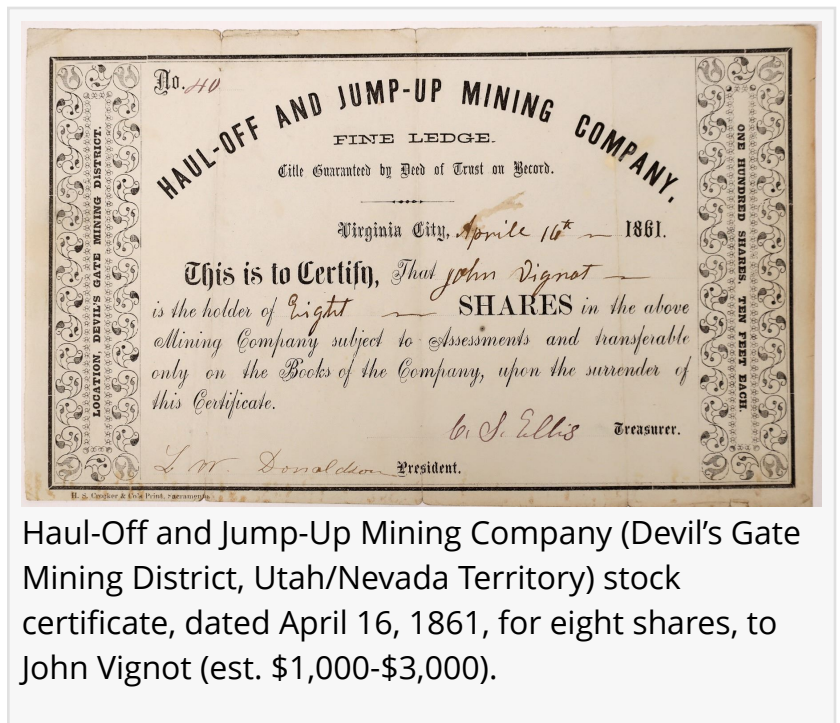 No. 40
HAUL-OFF AND JUMP-UP MINING COMPANY,
FINE LEDGE.
Title Guaranteed by Deed of Trust on Record.
Virginia City, Aprile 16th 1861.
This is to Certify, That John Vignot
is the holder of Eight SHARES in the above
Mining Company subject to Assessments and transferable
only on the Books of the Company, upon the surrender of
this Certificate.
C. S. Ellis Treasurer.
L W. Donaldson President.
LOCATION, DEVIL'S GATE MINING DISTRICT.
ONE HUNDRED SHARES TEN FEET EACH.
H. S. Crocker & Co's Print, Sacramento
Haul-Off and Jump-Up Mining Company (Devil’s Gate
Mining District, Utah/Nevada Territory) stock
certificate, dated April 16, 1861, for eight shares, to
John Vignot (est. $1,000-$3,000).